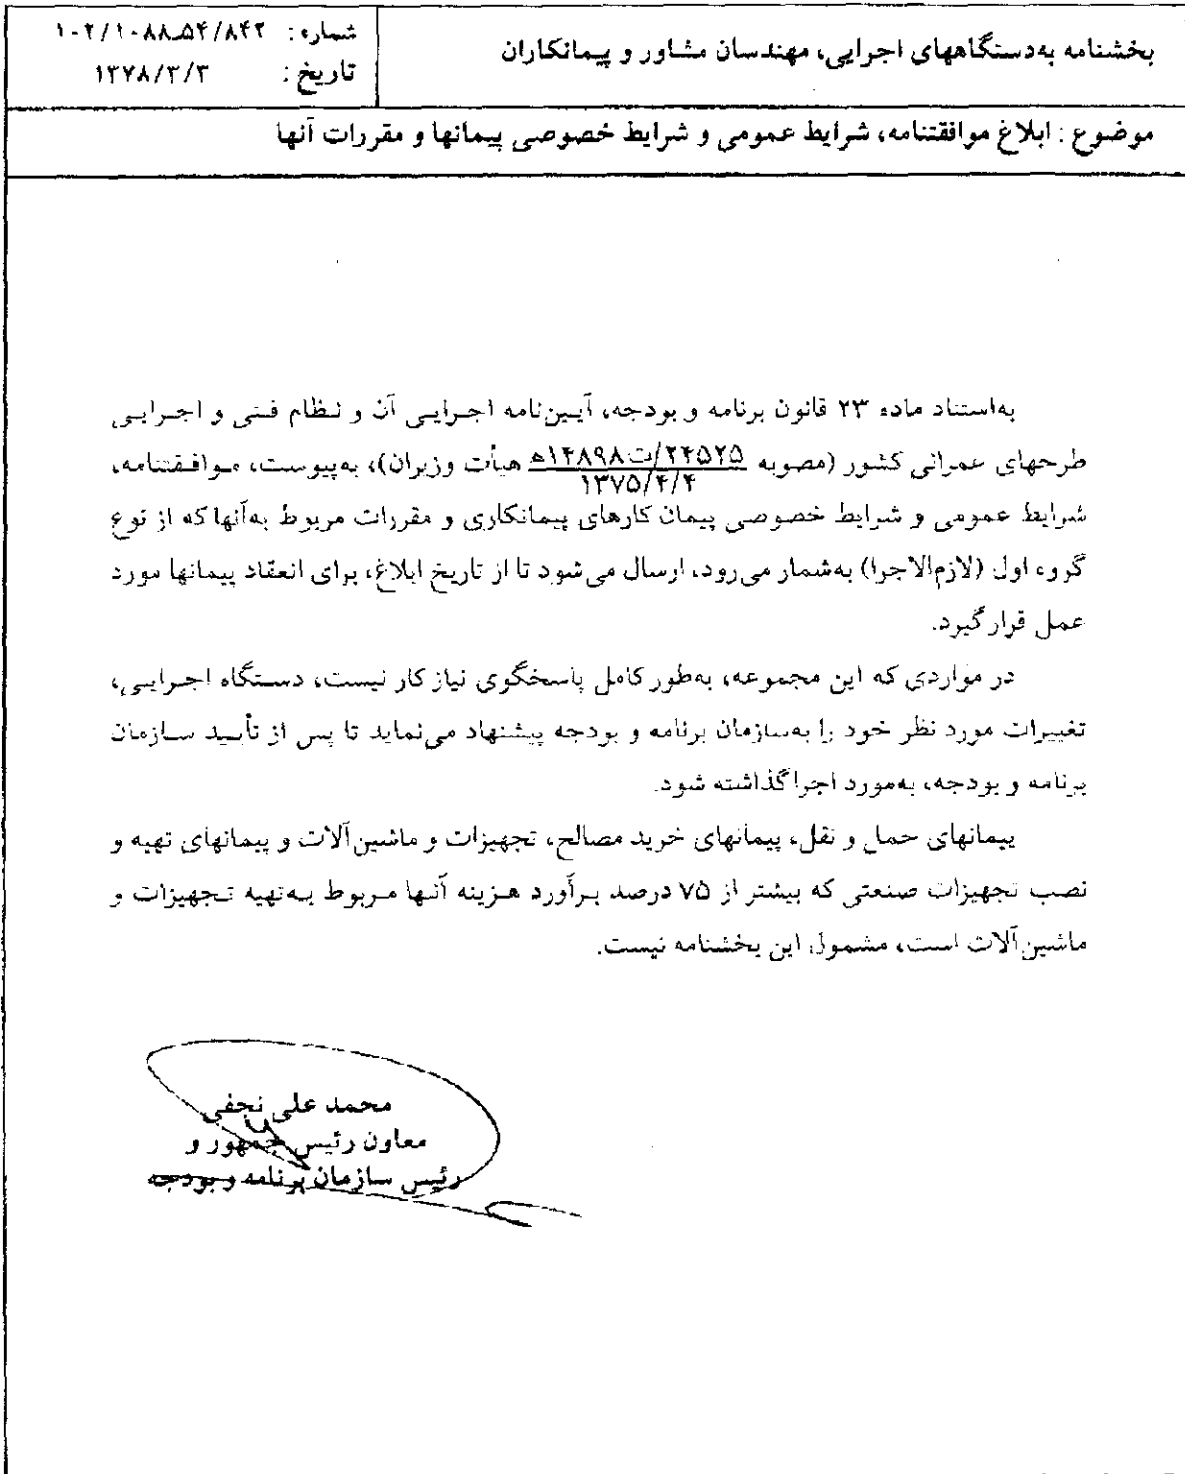 بخشنامه به‌دستگاههای اجرایی، مهندسان مشاور و پیمانکاران
شماره: ۱۰۲/۱۰۸۸ـ۵۴/۸۴۲
تاریخ: ۱۳۷۸/۳/۳
موضوع: ابلاغ موافقتنامه، شرایط عمومی و شرایط خصوصی پیمانها و مقررات آنها
به‌استناد ماده ۲۳ قانون برنامه و بودجه، آیین‌نامه اجرایی آن و نظام فنی و اجرایی
طرحهای عمرانی کشور (مصوبه ۲۴۵۲۵/ت۱۴۸۹۸ه هیأت وزیران)، به‌پیوست، موافقتنامه،
۱۳۷۵/۴/۴
شرایط عمومی و شرایط خصوصی پیمان کارهای پیمانکاری و مقررات مربوط به‌آنها که از نوع
گروه اول (لازم‌الاجرا) به‌شمار می‌رود، ارسال می‌شود تا از تاریخ ابلاغ، برای انعقاد پیمانها مورد
عمل قرار گیرد.
در مواردی که این مجموعه، به‌طور کامل پاسخگوی نیاز کار نیست، دستگاه اجرایی،
تغییرات مورد نظر خود را به‌سازمان برنامه و بودجه پیشنهاد می‌نماید تا پس از تأیید سازمان
برنامه و بودجه، به‌مورد اجرا گذاشته شود.
پیمانهای حمل و نقل، پیمانهای خرید مصالح، تجهیزات و ماشین‌آلات و پیمانهای تهیه و
نصب تجهیزات صنعتی که بیشتر از ۷۵ درصد برآورد هزینه آنها مربوط به‌تهیه تجهیزات و
ماشین‌آلات است، مشمول این بخشنامه نیست.
محمد علی نجفی
معاون رئیس جمهور و
رئیس سازمان برنامه و بودجه